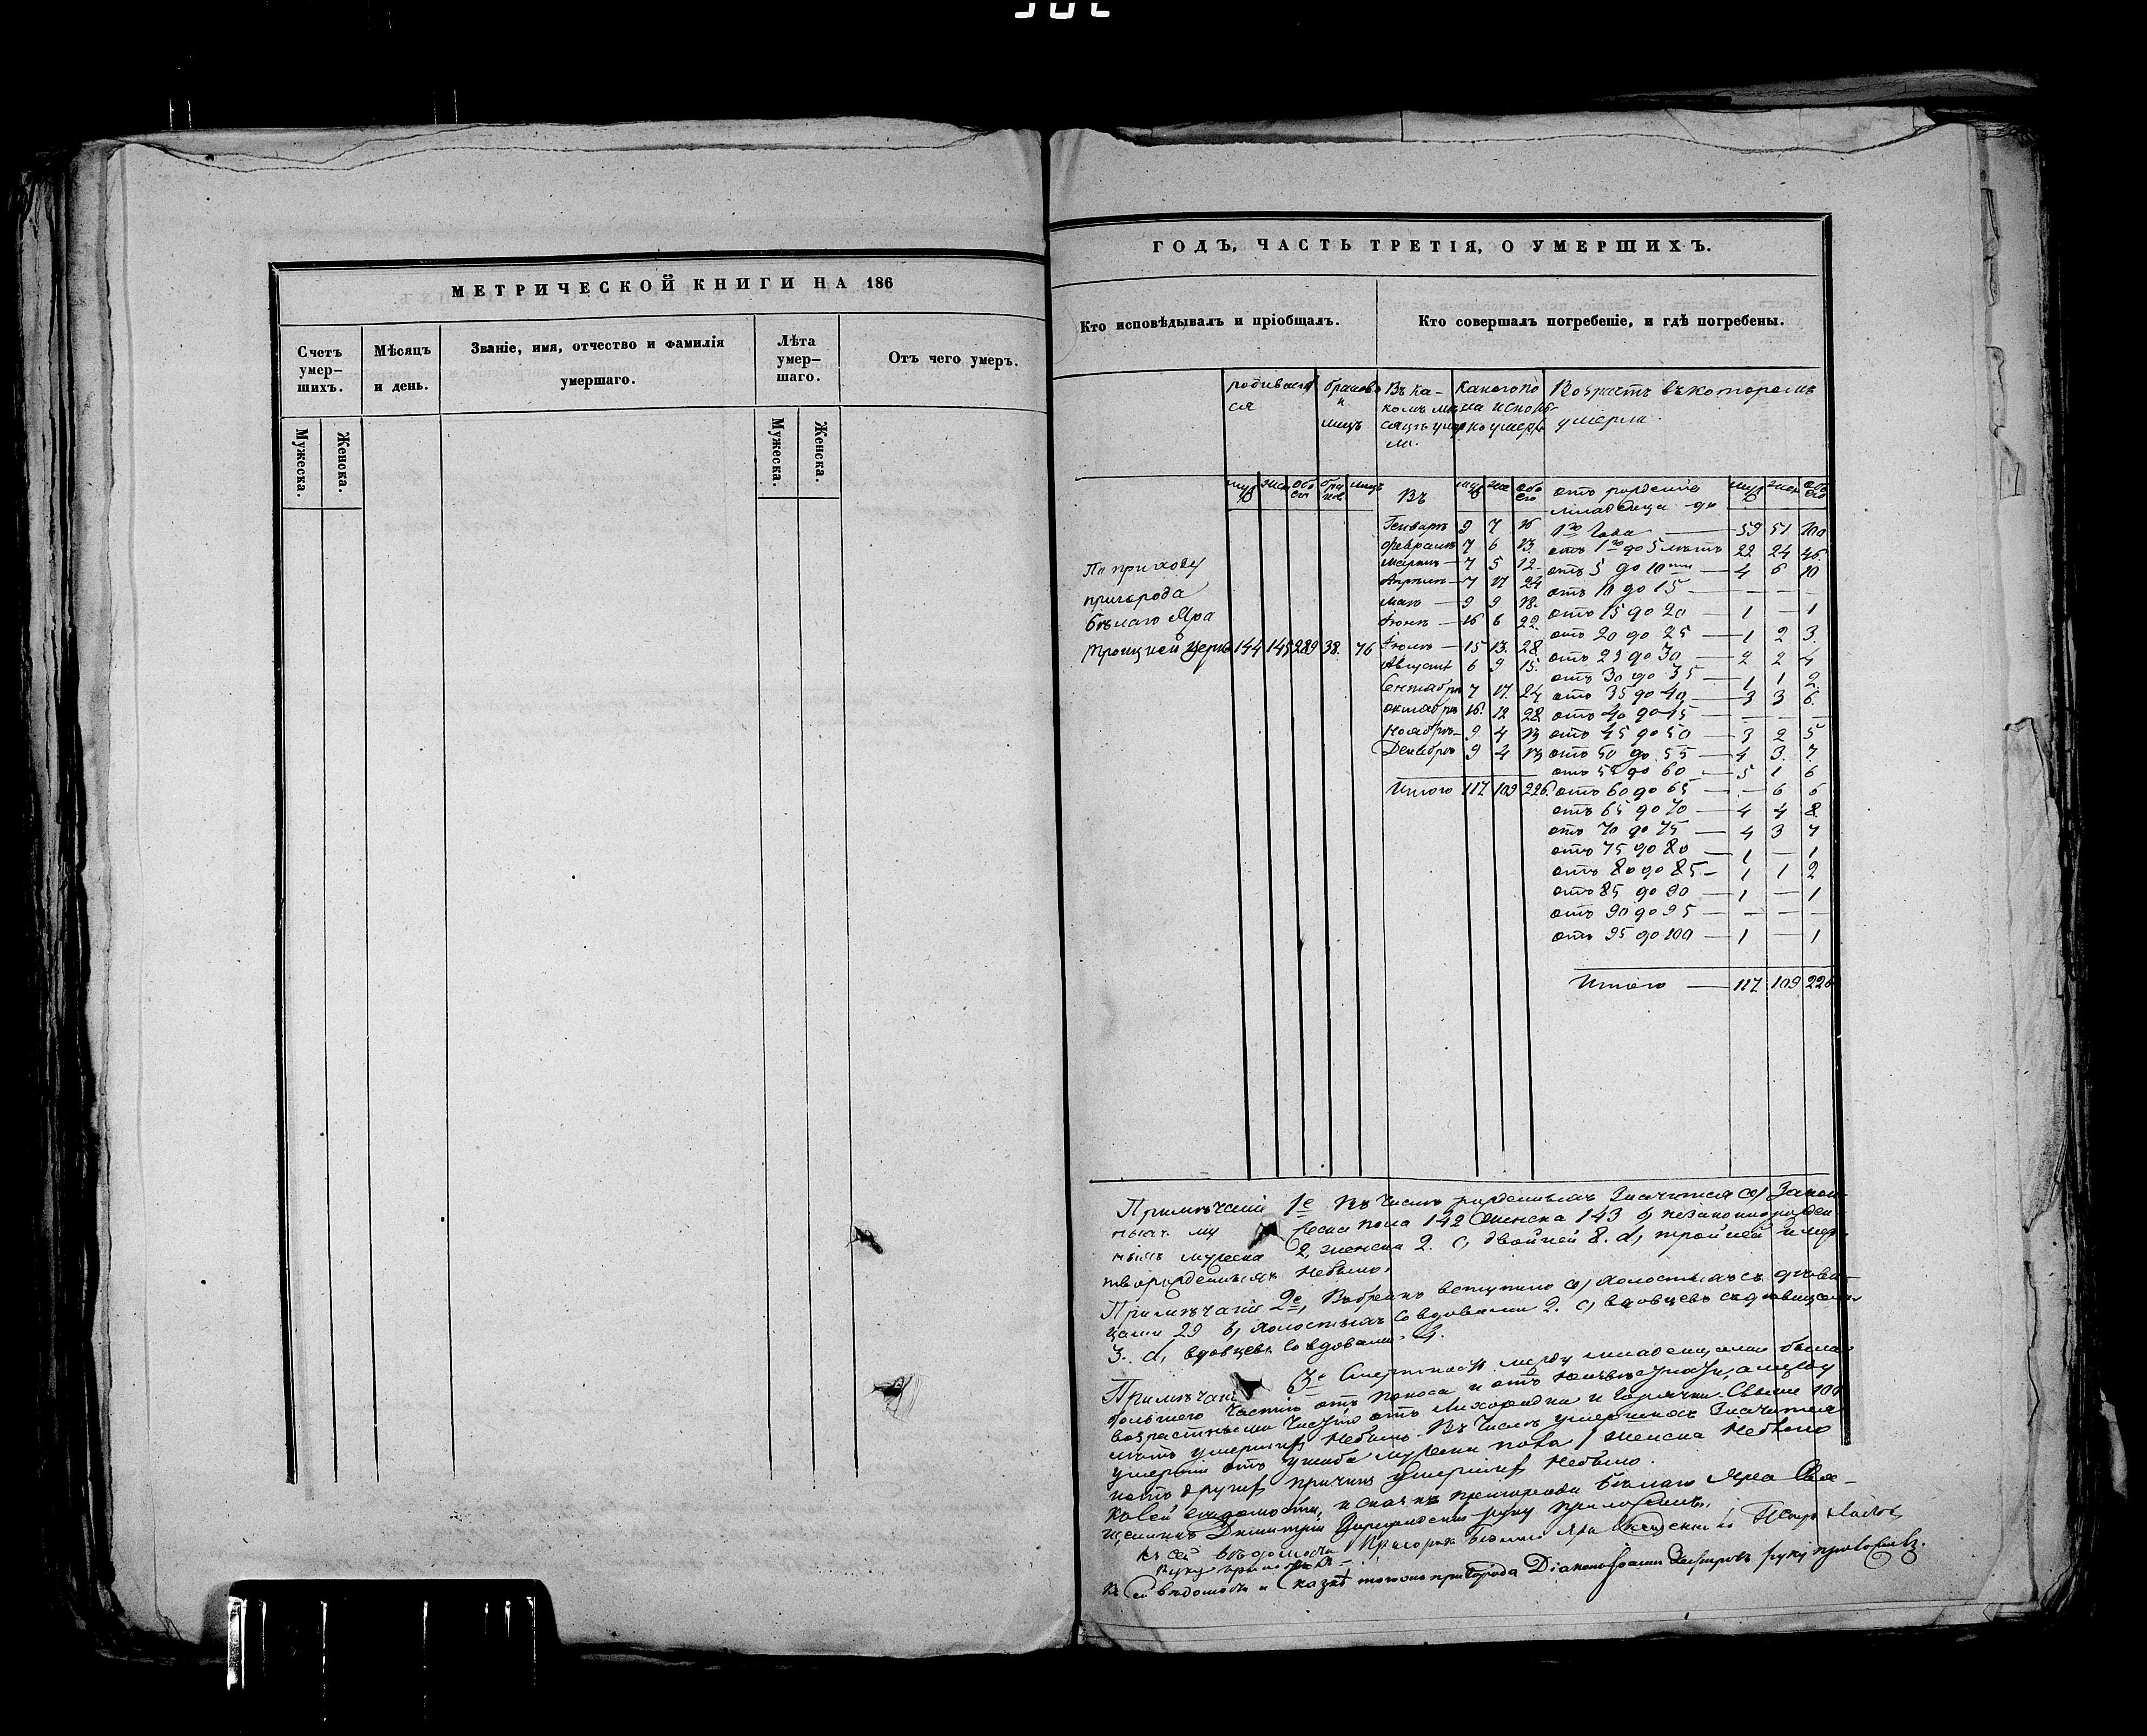 МЕТРИЧЕСКОЙ КНИГИ НА 186
Счетъ умер–шихъ.
Мѣсяцъ и день.
Званіе, имя, отчество и фамилія умершаго.
Лѣта умер–шаго.
Отъ чего умеръ.
Мужеска.
Женска.
Мужеска.
Женска.
ГОДЪ, ЧАСТЬ ТРЕТІЯ, О УМЕРШИХЪ.
Кто исповѣдывалъ и пріобщалъ.
Кто совершалъ погребеніе, и гдѣ погребены.
Возрастъ въ которомъ
умерли
отъ рожденія
младенца до
По приходу
пригорода
бѣлаго Яра
Троицкой церк 144 145 289 38. 76
Въ
Генварѣ 9 7 16
февралѣ 7 6 13.
мартѣ 7 5 12
Апрѣлѣ 7 17 24
маѣ 9 9 18.
Іюнѣ 16 6 22
Іюлѣ 15 13. 28
Август 6 9 15.
Сентябрѣ 7 17. 24
октябрѣ 16. 12 28
ноябрѣ 9. 4 13
Декабрѣ 9 4 13
Итого 117 109 226
1го Года 59 51 100
отъ 1го до 5 лѣтъ 22 24 46.
отъ 5 до 10ти 4 6 10
отъ 10 до 15 — — —
отъ 15 до 20 1 — 1
отъ 20 до 25 1 2 3.
отъ 25 до 30 2 2 4
отъ 30 до 35 1 1 2
отъ 35 до 40 3 3 6.
отъ 40 до 45 — — —
отъ 45 до 50 3 2 5
отъ 50 до 55 4 3. 7.
отъ 55 до 60 5 1 6
отъ 60 до 65 — 6 6
отъ 65 до 70 4 4 8.
отъ 70 до 75 4 3 7
отъ 75 до 80 1 — 1
отъ 80 до 85 1 1 2
отъ 85 до 90 1 — 1
отъ 90 до 95 — — —
отъ 95 до 100 1 — 1
Итого 117. 109 226
Примѣчаніе 1е Въ числѣ рожденныхъ Значится а) Закон
ныхъ му жеска пола 142 Женска 143 б) незаконнорожден
ныхъ мужеска 2, женска 2. с, двойней 8. d, тройней и мер
творожденныхъ Небыло.
Примѣчаніе 2е, Въ бракъ вступило а) холостыхъ съ дѣви
цами 29 б, холостыхъ со вдовами 2. с, вдовцевъ съ дѣвицами
3. d, вдовцевъ со вдовами 4.
Примѣчаніе 3е Смертность между младенцами была
большею частію отъ поноса и отъ а между
возрастными частію отъ лихорадки и Горячки. Свыше 100
лѣтъ умершихъ Небыло. Въ числѣ умершихъ Значится
умершій отъ ушиба мужеска пола 1 женска Небыло
другихъ причинъ Умершихъ Небыло.
Ксей вѣдомости пригорода Бѣлаго Яра Свя–
щенникъ Димитрій руку приложилъ.
Къ сей вѣдомости Пригорода Бѣлаго Яра священникъ Петръ
руку приложилъ
Къ сей вѣдомости и тогоже пригорода Діаконъ Іоаннъ руку приложилъ.